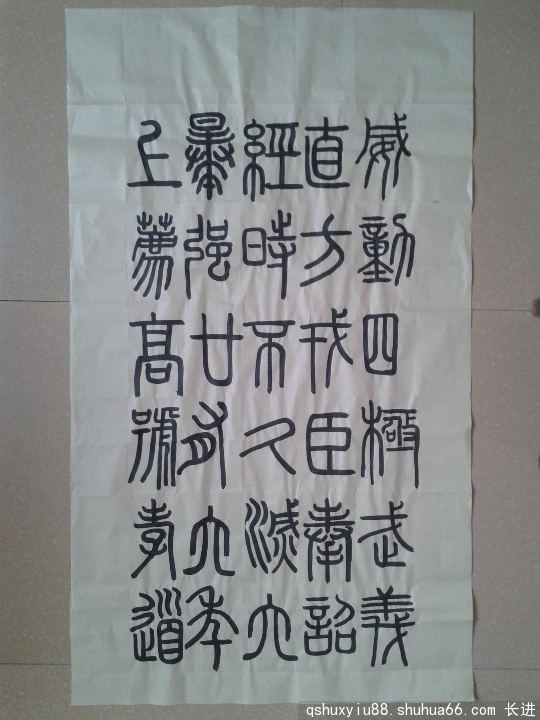 威動四極武義
直方戎臣奉詔
經時不久滅六
暴强廿有六年
上薦高號孝道
qshuxyiu88.shuhua66.com 长进